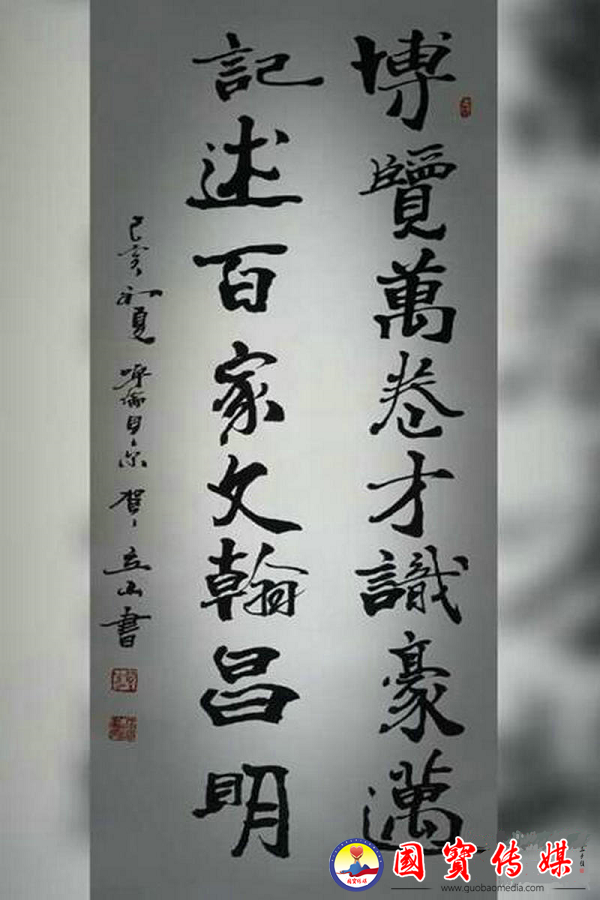 博覽萬卷才識豪邁
記述百家文翰昌明
己亥初夏 呼倫貝尔 賀立山書
國寳传媒
www.guobaomedia.com